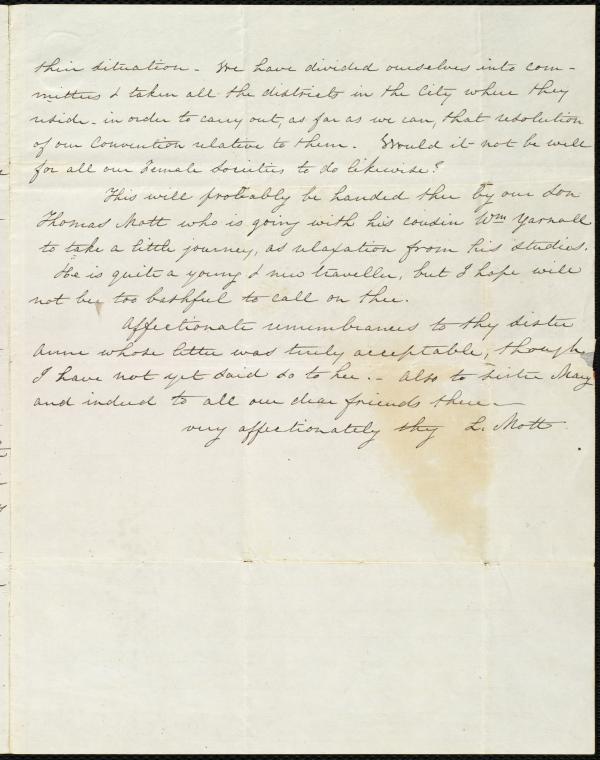 their situation - We have divided ourselves into com-
mittees & taken all the districts in the City where they
reside - in order to carry out, as far as we can, that resolution
of our Convention relative to them. Would it not be well
for all our Female Societies to do likewise?
This will probably be handed thee by our son
Thomas Mott who is going with his cousin Wm Yarnall
to take a little journey, as relaxation from his studies.
He is quite a young & new traveller, but I hope will
not be too bashful to call on thee.
Affectionate remembrances to thy sister
Anne whose letter was truly acceptable, though
I have not yet said so to her. - Also to sister Mary
and indeed to all our dear friends there -
very affectionately thy L. Mott